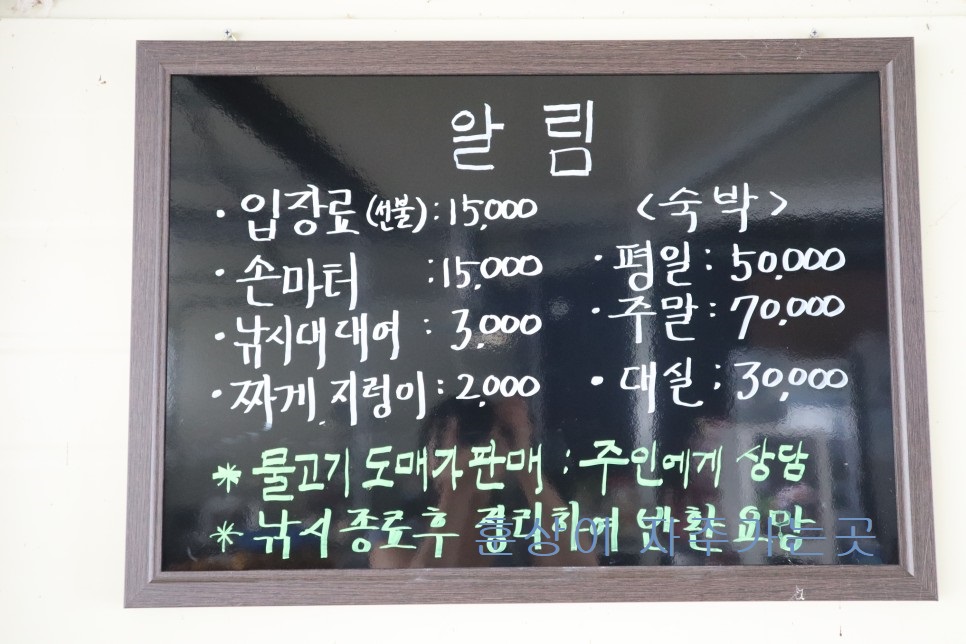 알 림
· 입장료(선불) : 15,000
· 손마터 : 15,000
· 낚시대 대여 : 3,000
· 짜게, 지렁이 : 2,000
<숙박>
· 평일 : 50,000
· 주말 : 70,000
· 대실 : 30,000
* 물고기 도매가 판매 : 주인에게 상담
* 낚시 종료후 정리하여 반환 요망
훈상이 자주가는곳